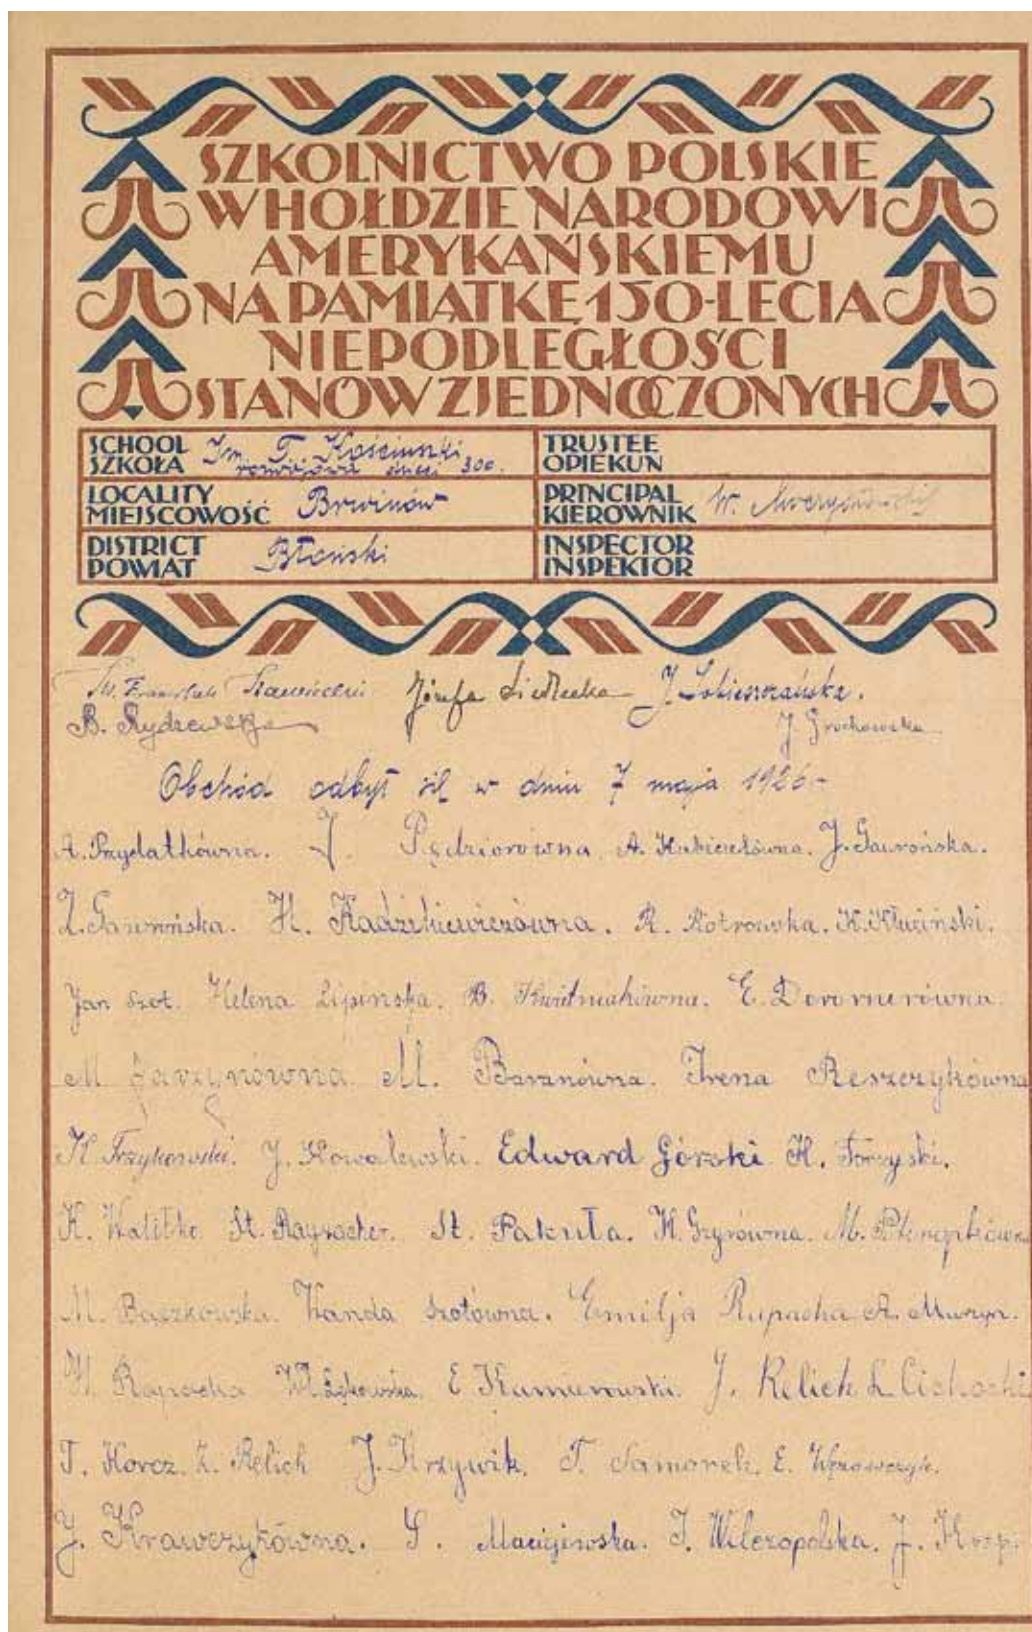 SZKOLNICTWO POLSKIE
W HOŁDZIE NARODOWI
AMERYKAŃSKIEMU
NA PAMIĄTKĘ 150-LECIA
NIEPODLEGŁOŚCI
STANÓW ZJEDNOCZONYCH
SCHOOL
SZKOŁA Im. T. Kościuszki
300.
TRUSTEE
OPIEKUN
LOCALITY
MIEJSCOWOŚĆ Brwinów
PRINCIPAL
KIEROWNIK W.
DISTRICT
POWIAT Błoński
INSPECTOR
INSPEKTOR
Józefa Siedlecka J. Sobieszczańska.
B. Rydzewska J. Grochowska
Obchód odbył się w dniu 7 maja 1926-
A. Przydatkówna. J. Pędziorówna. A. Kubicielówna. J. Gawrońska.
Z. Gawrońska. H. Kadzikiewiczówna. R. K. Kluciński.
Jan Szot. Helena Lipińska. B. Kwitniakówna. E.
M. Jarzynówna. M. Baranówna. Irena Reszczykówna
K. J. Kowalewski. Edward Górski. H.
K. St. St. Pakuła. H. Gryrówna. M.
M. Bączkowska. Wanda Szotówna. Emilja Rapacka. A. Murzyn.
H. Rapacka Wł. E. J. Relich L. Cichocki
T. Korcz. Z. Relich J. Krzywik. T. Samorek. E.
J. Krawczykówna. S. Maciejewska. I. Wilczopolska. J.